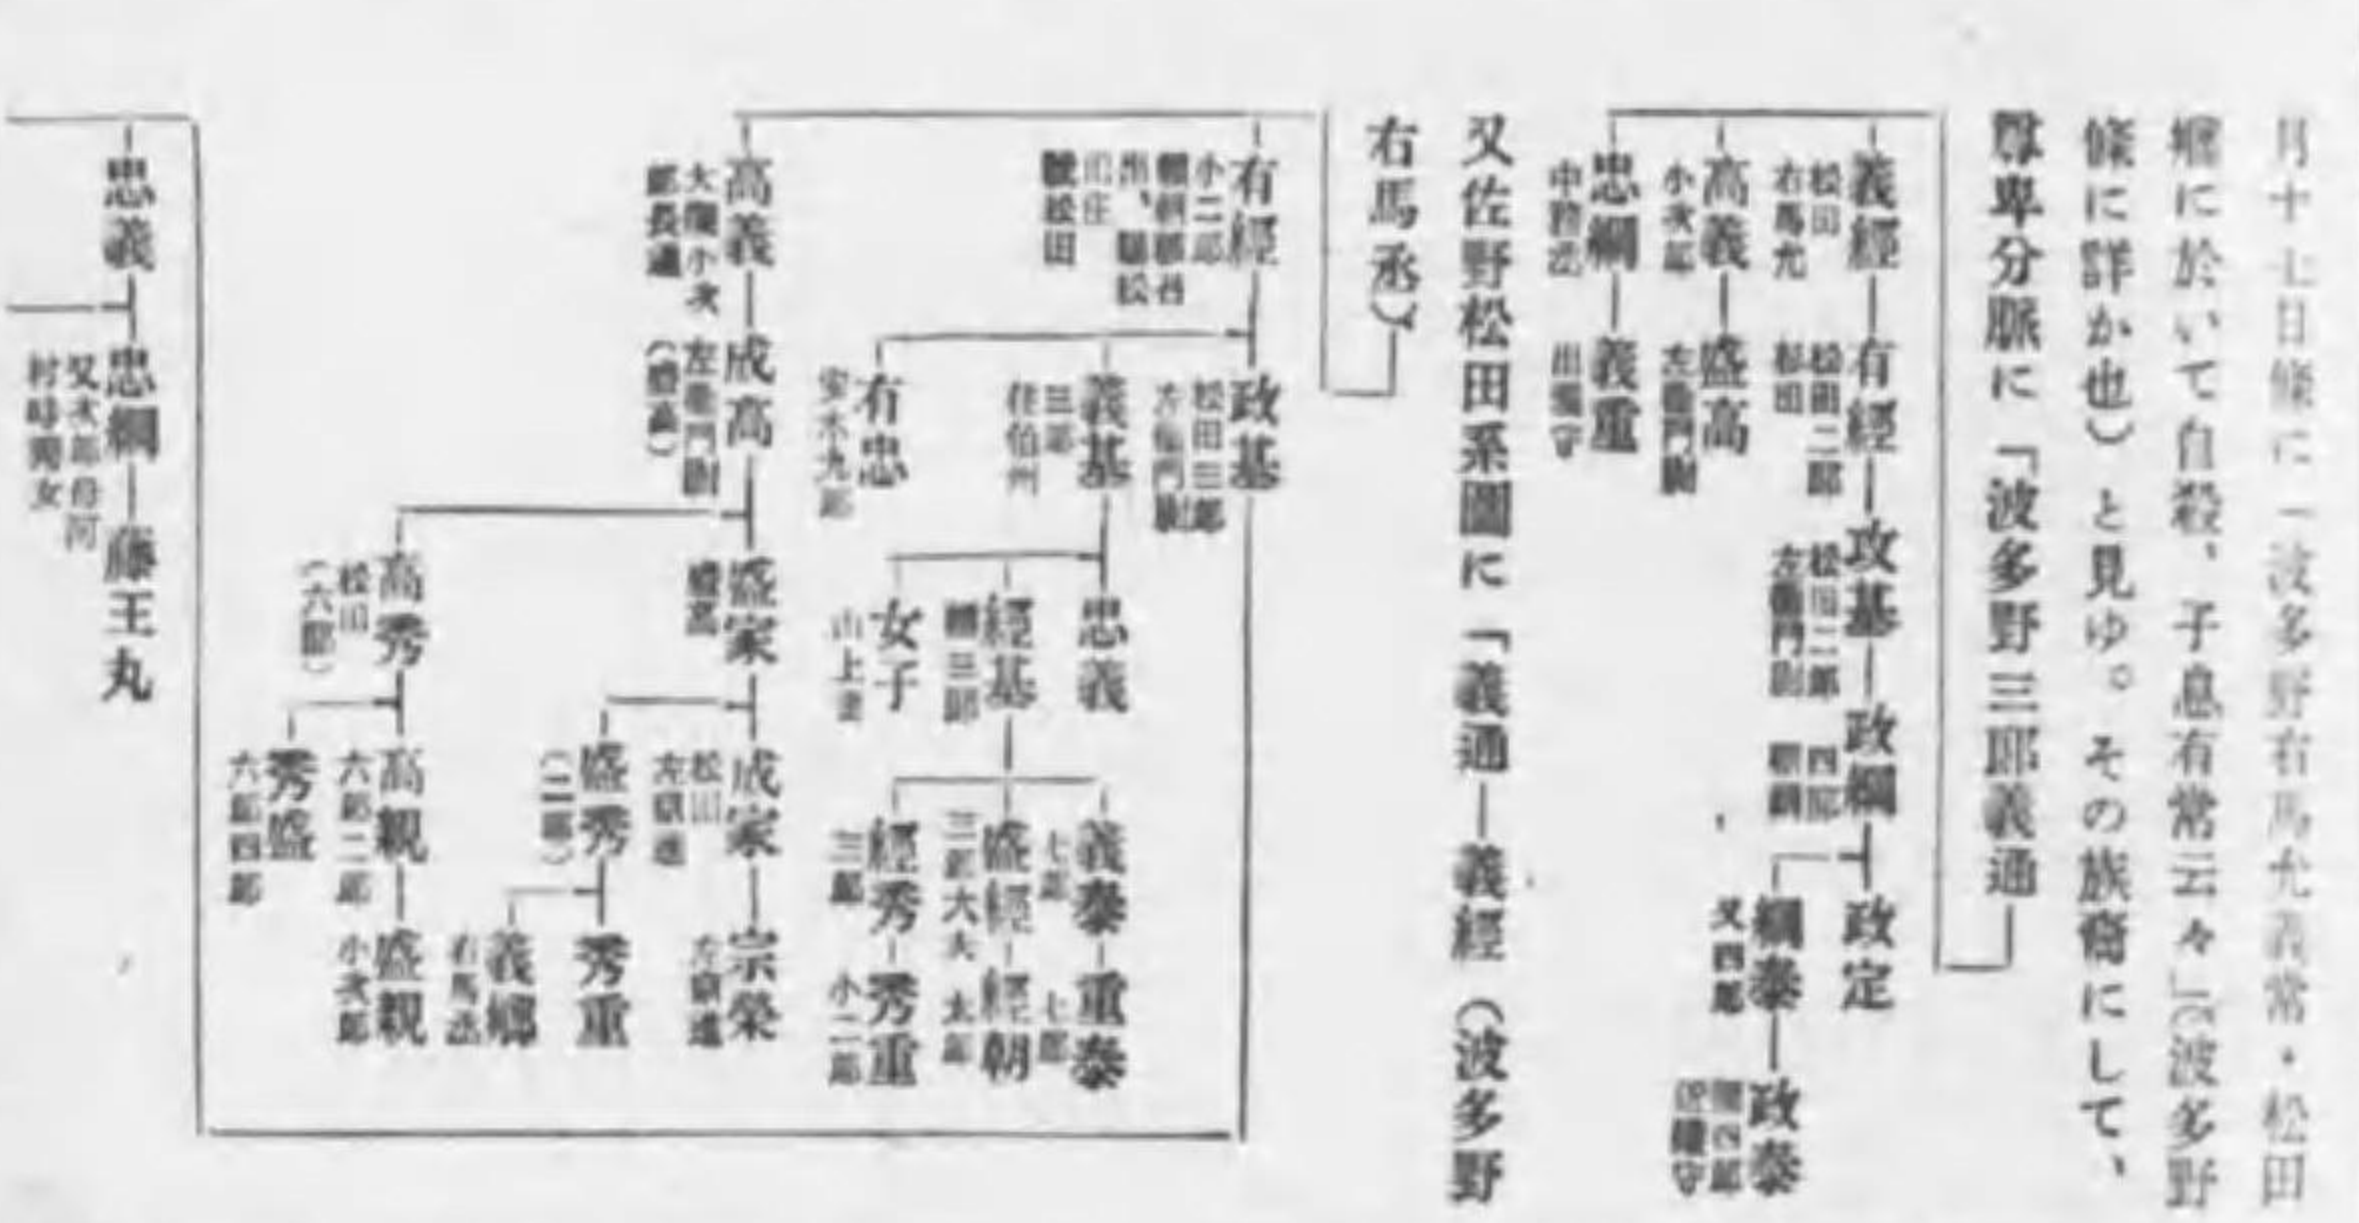 月十七日條に「波多野右馬允義常・松田
郷に於いて自殺、子息有常云々」(波多野
條に詳か也)と見ゆ。その族裔にして、
尊卑分脈に「波多野三郎義通
義經
松田
右馬允
有經
松田二郎
政基
松田二郎
左衞門尉
政綱
四郎
政定
綱泰
又四郎
政泰
高義
小次郎
盛高
左衞門尉
忠綱
中務丞
義重
出雲守
又佐野松田系圖に「義通―義經(波多野
右馬丞)
有經
小二郎
號松田
政基
松田三郎
左衞門尉
義基
三郎
住伯州
忠義
經基
女子
山上妻
義泰
七郎
重泰
七郎
盛經
三郎大夫
經朝
太郎
經秀
三郎
秀重
小二郎
有忠
高義
成高
左衞門尉
盛家
成家
松田
宗榮
盛秀
(二郎)
秀重
義郷
右馬丞
高秀
松田
(六郎)
高親
六郎二郎
盛親
小次郎
秀盛
六郎四郎
忠義
忠綱
藤王丸